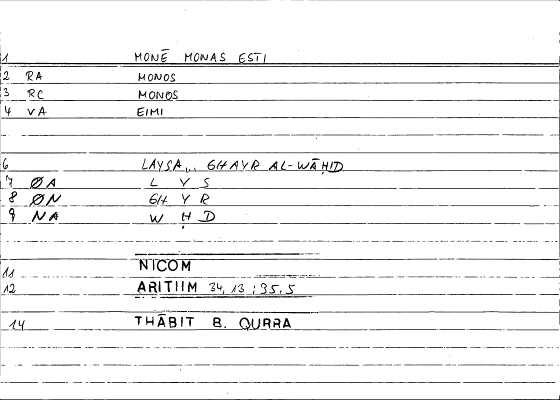 1 MONĒ MONAS ESTI
2 RA MONOS
3 RC MONOS
4 VA EIMI
6 LAYSA... GHAYR AL-WĀḤID
7 ØA L Y S
8 ØN GH Y R
9 NA W Ḥ D
11 NICOM
12 ARITHM 34,13 ; 35,5
14 THĀBIT B. QURRA